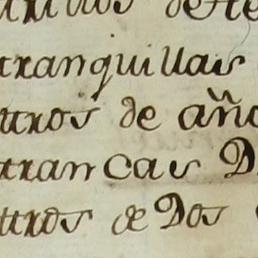 tranquillas
ttros de año
trancas D
ttros de Dos